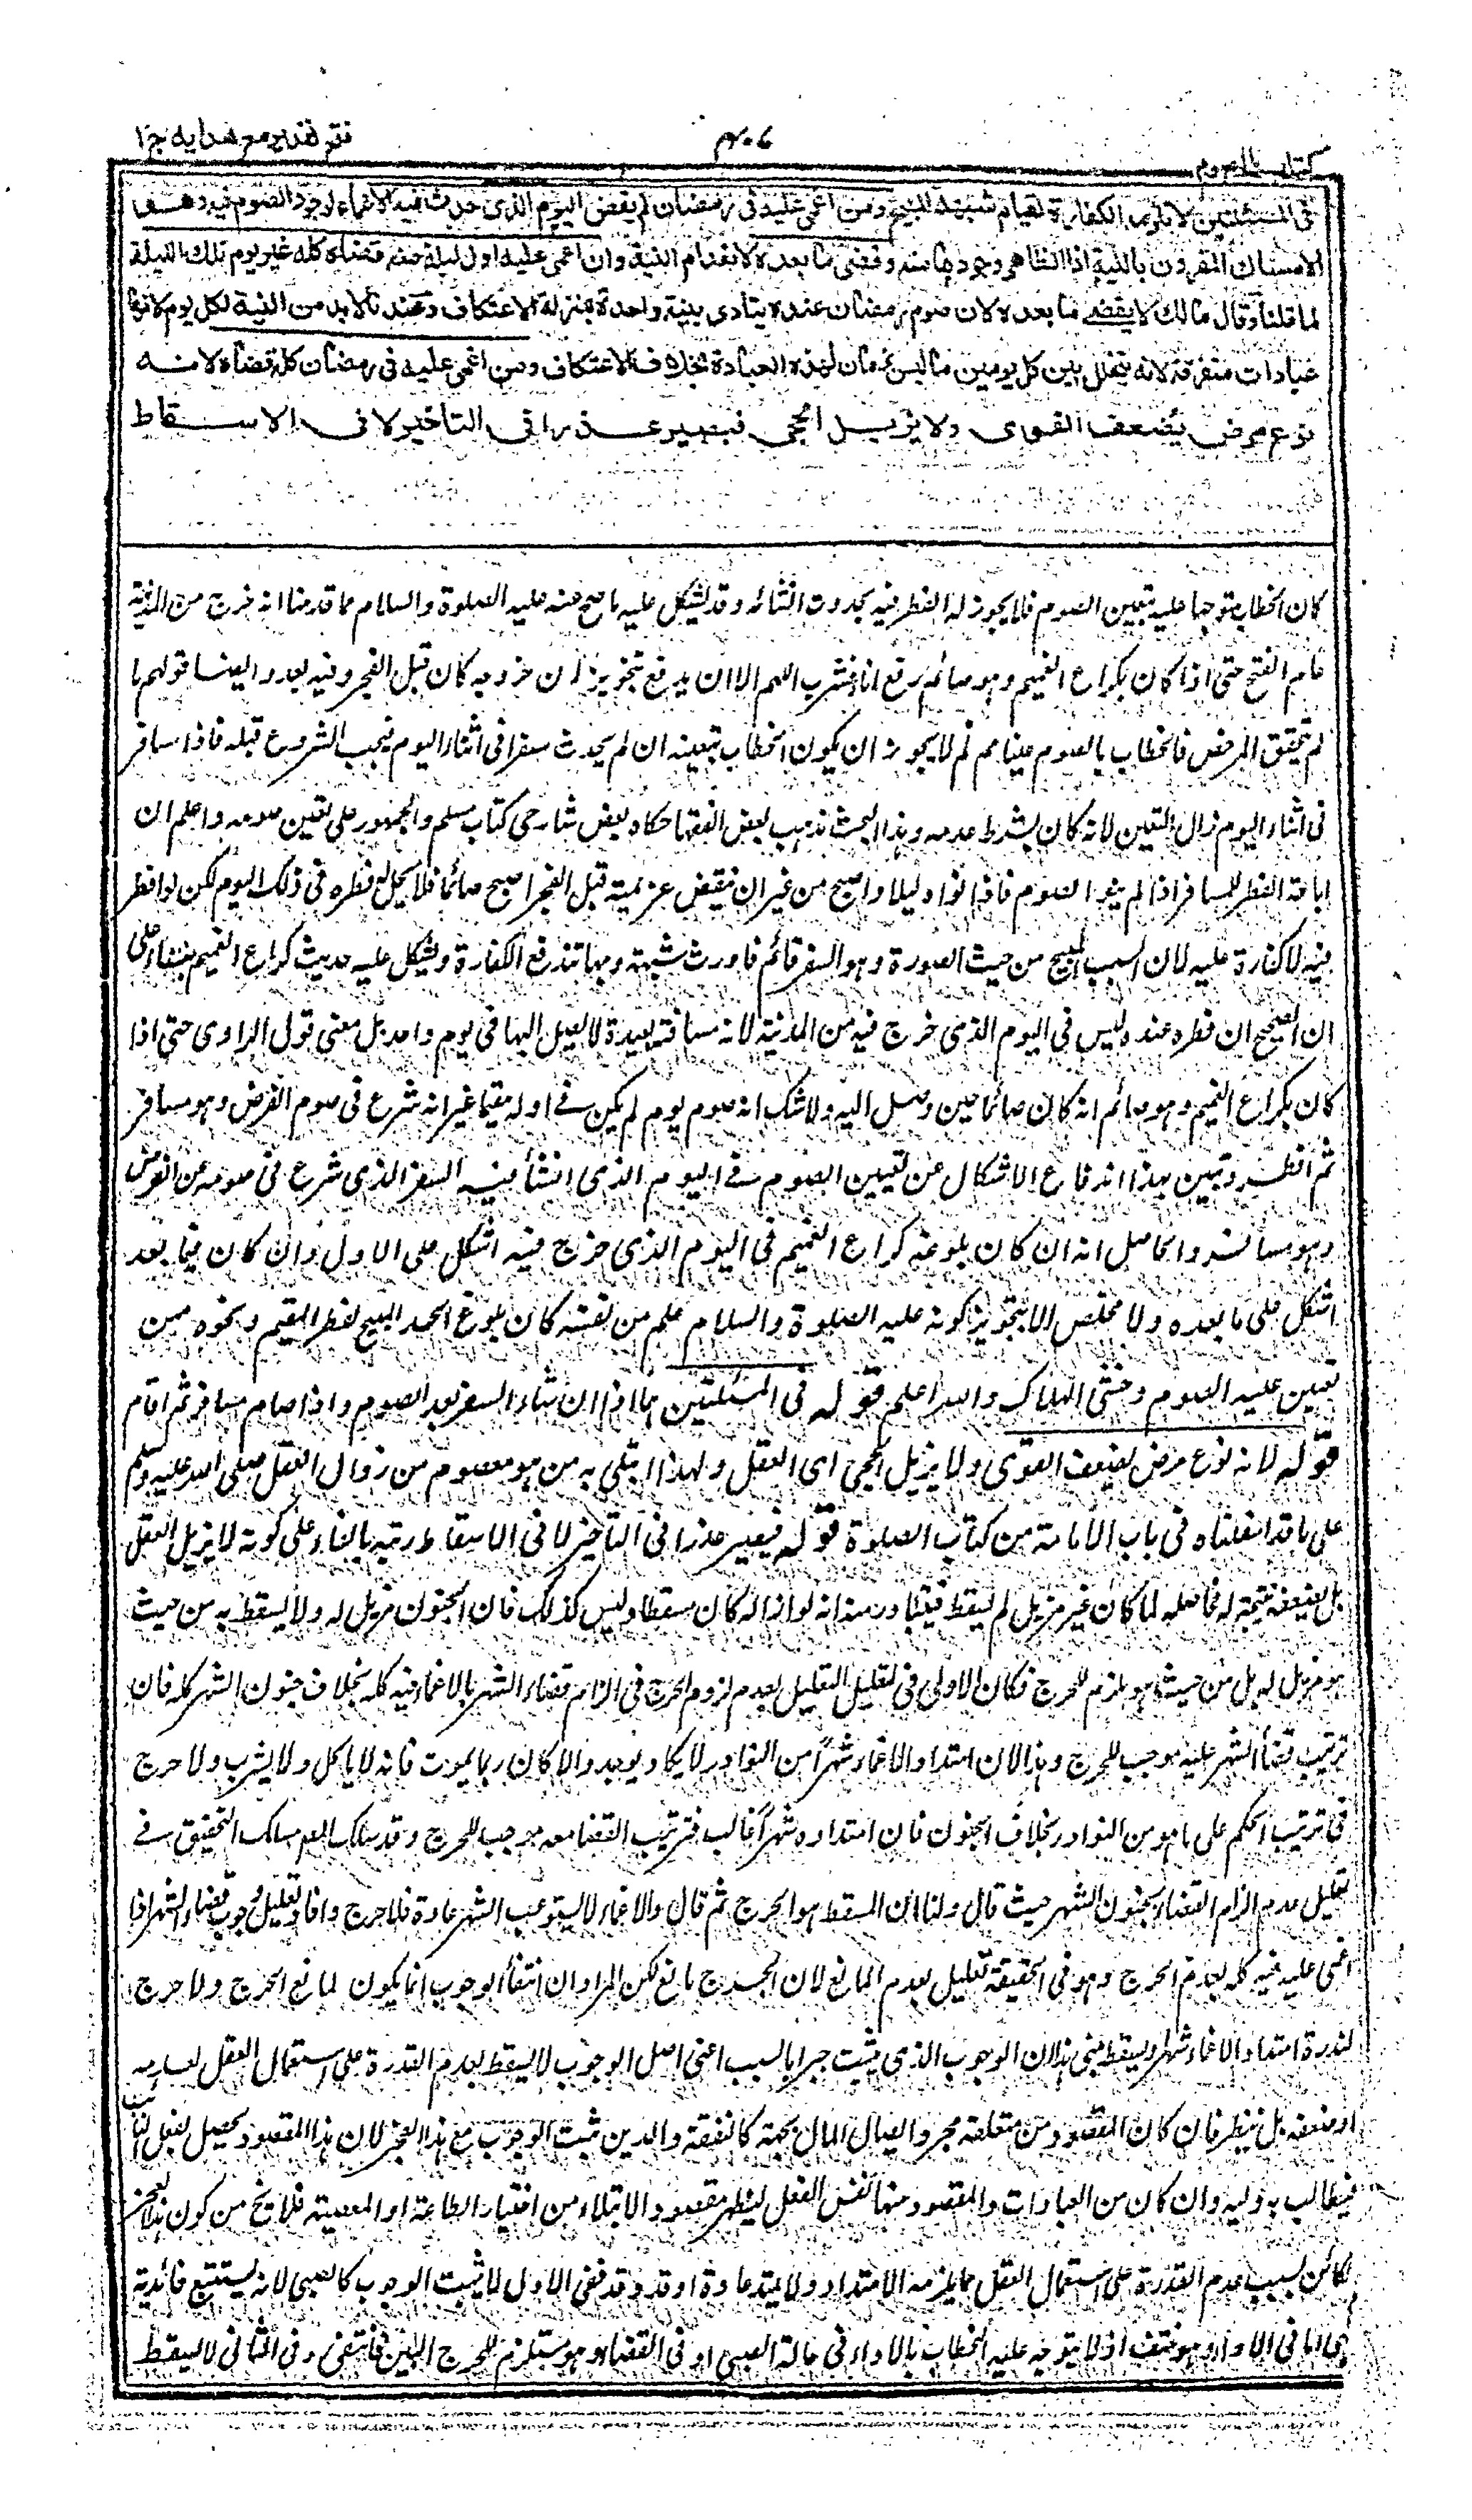 كتاب الصوم
٤٠٦
فتح قدير مع هدايه ج ١
فى المسئلتين لا تلزمه الكفارة لقيام شبهة المبيح ومن اغمى عليه فى رمضان لم يقض اليوم الذى حدث فيه الاغماء لوجود الصوم فيه وهو
الامساك المقرون بالنية اذ الظاهر وجودها منه وقضى ما بعده لانعدام النية وان اغمى عليه اول ليلة منه قضاه كله غير يوم تلك الليلة
لما قلنا وقال مالك لا يقضى ما بعده لان صوم رمضان عنده يتادى بنية واحدة بمنزلة الاعتكاف وعندنا لا بد من النية لكل يوم لانها
عبادات متفرقة لانه يتخلل بين كل يومين ما ليس بزمان لهذه العبادة بخلاف الاعتكاف ومن اغمى عليه فى رمضان كله قضاه لانه
نوع مرض يضعف القوى ولا يزيل الحجى فيصير عذرا فى التأخير لا فى الاسقاط
كان الخطاب متوجها عليه بتعيين الصوم فلا يجوز له الفطر فيه بحدوث انشائه وقد يشكل عليه ما صح عنه عليه الصلوة والسلام مما قدمنا انه خرج من المدينة
عام الفتح حتى اذا كان بكراع الغميم وهو صائم رفع اناء فشرب اللهم الا ان يدفع بتجويز ان خروجه كان قبل الفجر وفيه بعد وايضا قولهم ما
لم يتحقق المرخص فالخطاب بالصوم عينا مم لم لا يجوز ان يكون الخطاب بتعينه ان لم يحدث سفرا فى اثناء اليوم فيجب الشروع قبله فاذا سافر
فى اثناء اليوم زال التعين لانه كان بشرط عدمه وبهذا البحث مذهب بعض الفقها حكاه بعض شارحى كتاب مسلم والجمهور على تعين صومه واعلم ان
اباحة الفطر للمسافر اذا لم ينو الصوم فاذا نواه ليلا واصبح من غير ان ينقض عزيمته قبل الفجر اصبح صائما فلا يحل له فطره فى ذلك اليوم لكن لو افطر
فيه لا كفارة عليه لان السبب المبيح من حيث الصورة وهو السفر قائم فاورث شبهة وبها تندرفع الكفارة ويشكل عليه حديث كراع الغميم بناء على
ان الصحيح ان فطره عنده ليس فى اليوم الذى خرج فيه من المدينة لانه مسافة بعيدة لا يصل اليها فى يوم واحد بل معنى قول الراوى حتى اذا
كان بكراع الغميم وهو صائم انه كان صائما حين وصل اليه ولا شك انه صوم يوم لم يكن فى اوله مقيما غير انه شرع فى صوم الفرض وهو مسافر
ثم افطر وتبين بهذا اندفاع الاشكال عن تعيين الصوم فى اليوم الذى انشأ فيه السفر الذى شرع فى صومه عن الفرض
وهو مسافر والحاصل انه ان كان بلوغه كراع الغميم فى اليوم الذى خرج فيه اشكل على الاول وان كان فيما بعد
اشكل على ما بعده ولا مخلص الا بتجويز كونه عليه الصلوة والسلام علم من نفسه كان بلوغ الحد المبيح لفطر المقيم ونحوه ممن
تعين عليه الصوم وخشى الهلاك والله اعلم قوله فى المسئلتين هما اذا انشاء السفر بعد الصوم واذا صام مسافر ثم اقام
قوله لانه نوع مرض يضعف القوى ولا يزيل الحجى اى العقل ولهذا ابتلى به من هو معصوم من زوال العقل صلى الله عليه وسلم
على ما قد اسفلناه فى باب الامامة من كتاب الصلوة قوله فيصير عذرا فى التأخير لا فى الاسقاط رتبه بالفاء على كونه لا يزيل العقل
بل يضعفه نتيجة له فحاصله لما كان غير مزيل لم يسقط فيتبادر منه انه لو ازاله كان مسقطا وليس كذلك فان الجنون مزيل له ولا يسقط به من حيث
هو مزيل له بل من حيث هو ملزم للحرج فكان الاولى فى التعليل التعليل بعدم لزوم الحرج فى الزام قضاء الشهر بالاغماء فيه كله بخلاف جنون الشهر كله فان
ترتيب قضاء الشهر عليه موجب للحرج وهذا لان امتداد الاغماء شهرا من النوادر لا يكاد يوجد والا كان ربما يموت فانه لا ياكل ولا يشرب ولا حرج
فى ترتيب الحكم على ما هو من النوادر بخلاف الجنون فان امتداده شهرا غالب فترتيب القضا معه موجب للحرج وقد سلك المص مسلك التحقيق فى
تعليل عدم الزام القضاء بجنون الشهر حيث قال ولنا ان المسقط هو الحرج ثم قال والاغماء لا يستوعب الشهر عادة فلا حرج وافاد تعليل وجوب قضاء الشهر اذا
اغمى عليه فيه كله بعدم الحرج وهو فى الحقيقة تعليل بعدم المانع لان الحرج مانع لكن المراد ان انتفأ الوجوب انما يكون لمانع الحرج ولا حرج
لندرة امتداد الاغماء شهرا وبسقط مبنى هذا ان الوجوب الذى يثبت جبرا بالسبب اعنى اصل الوجوب لا يسقط بعدم القدرة على استعمال العقل لعدمه
او ضعفه بل ينظر فان كان المقصود من متعلقه مجرد ايصال المال بجهة كالنفقة والدين ثبت الوجوب مع هذا العجز لان هذا المقصود يحصل بفعل النائب
فيطالب به وليه وان كان من العبادات والمقصود منها نفس الفعل ليظهر مقصود الابتلاء من اختيار الطاعة او المعصية فلا يخ من كون هذا العجز
الكائن بسبب عدم القدرة على استعمال العقل مما يلزمه الامتداد او لا يمتد عادة او قد وقد ففى الاول لا يثبت الوجوب كالصبى لانه يستتبع فائدته
وهى اما فى الاداء وهو منتف اذ لا يتوجه عليه الخطاب بالاداء فى حالة الصبى او فى القضاء وهو مستلزم للحرج البين فانتفى وفى الثانى لا يسقط